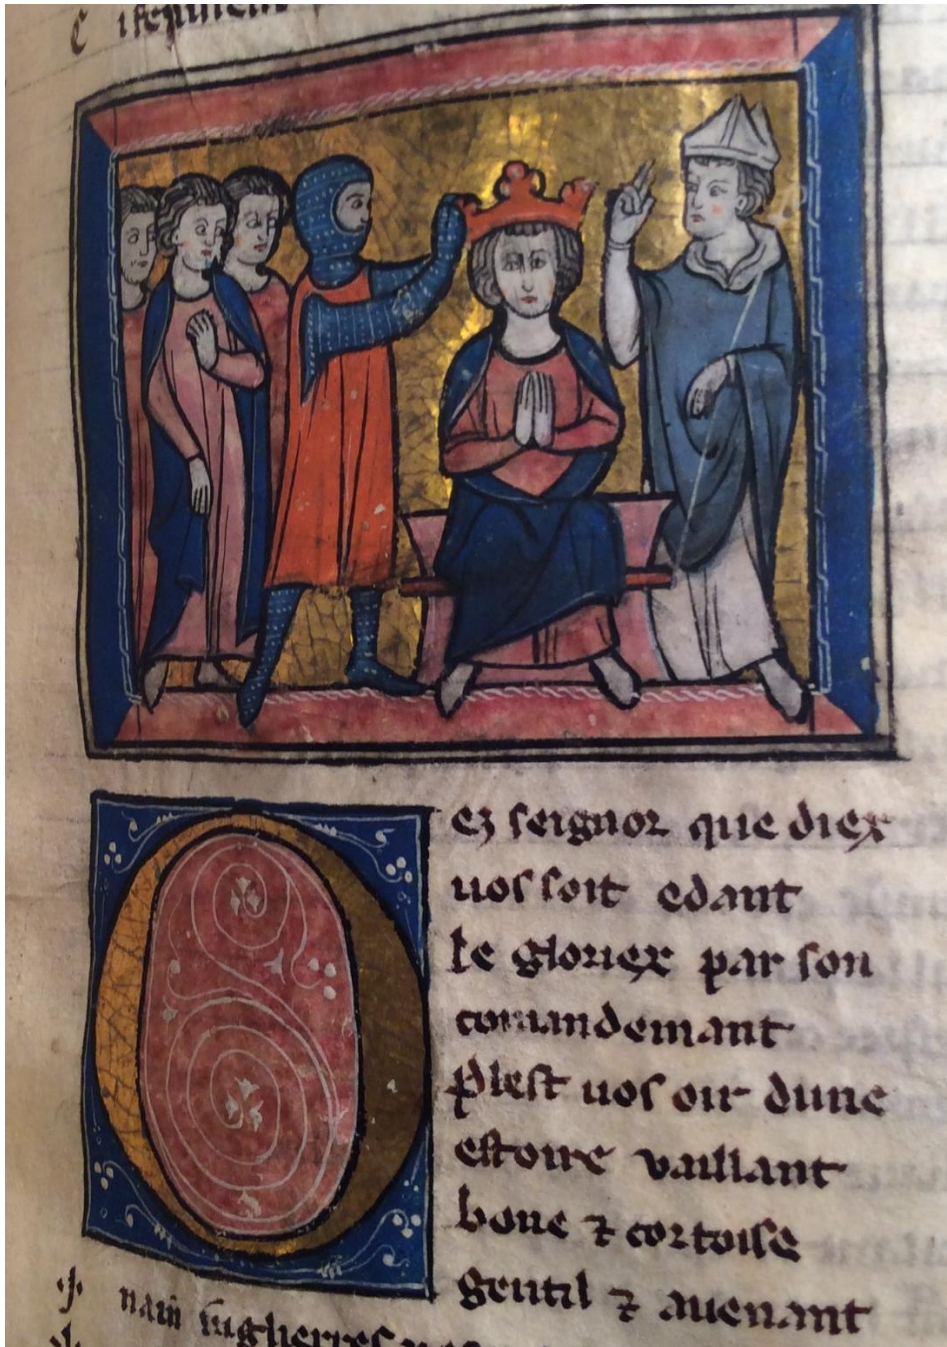 Oez seignor que diex
uos soit edant
le gloriex par son
comandemant
plest uos oir dune
estoire vaillant
bone ⁊ cortoise
gentil ⁊ auenant